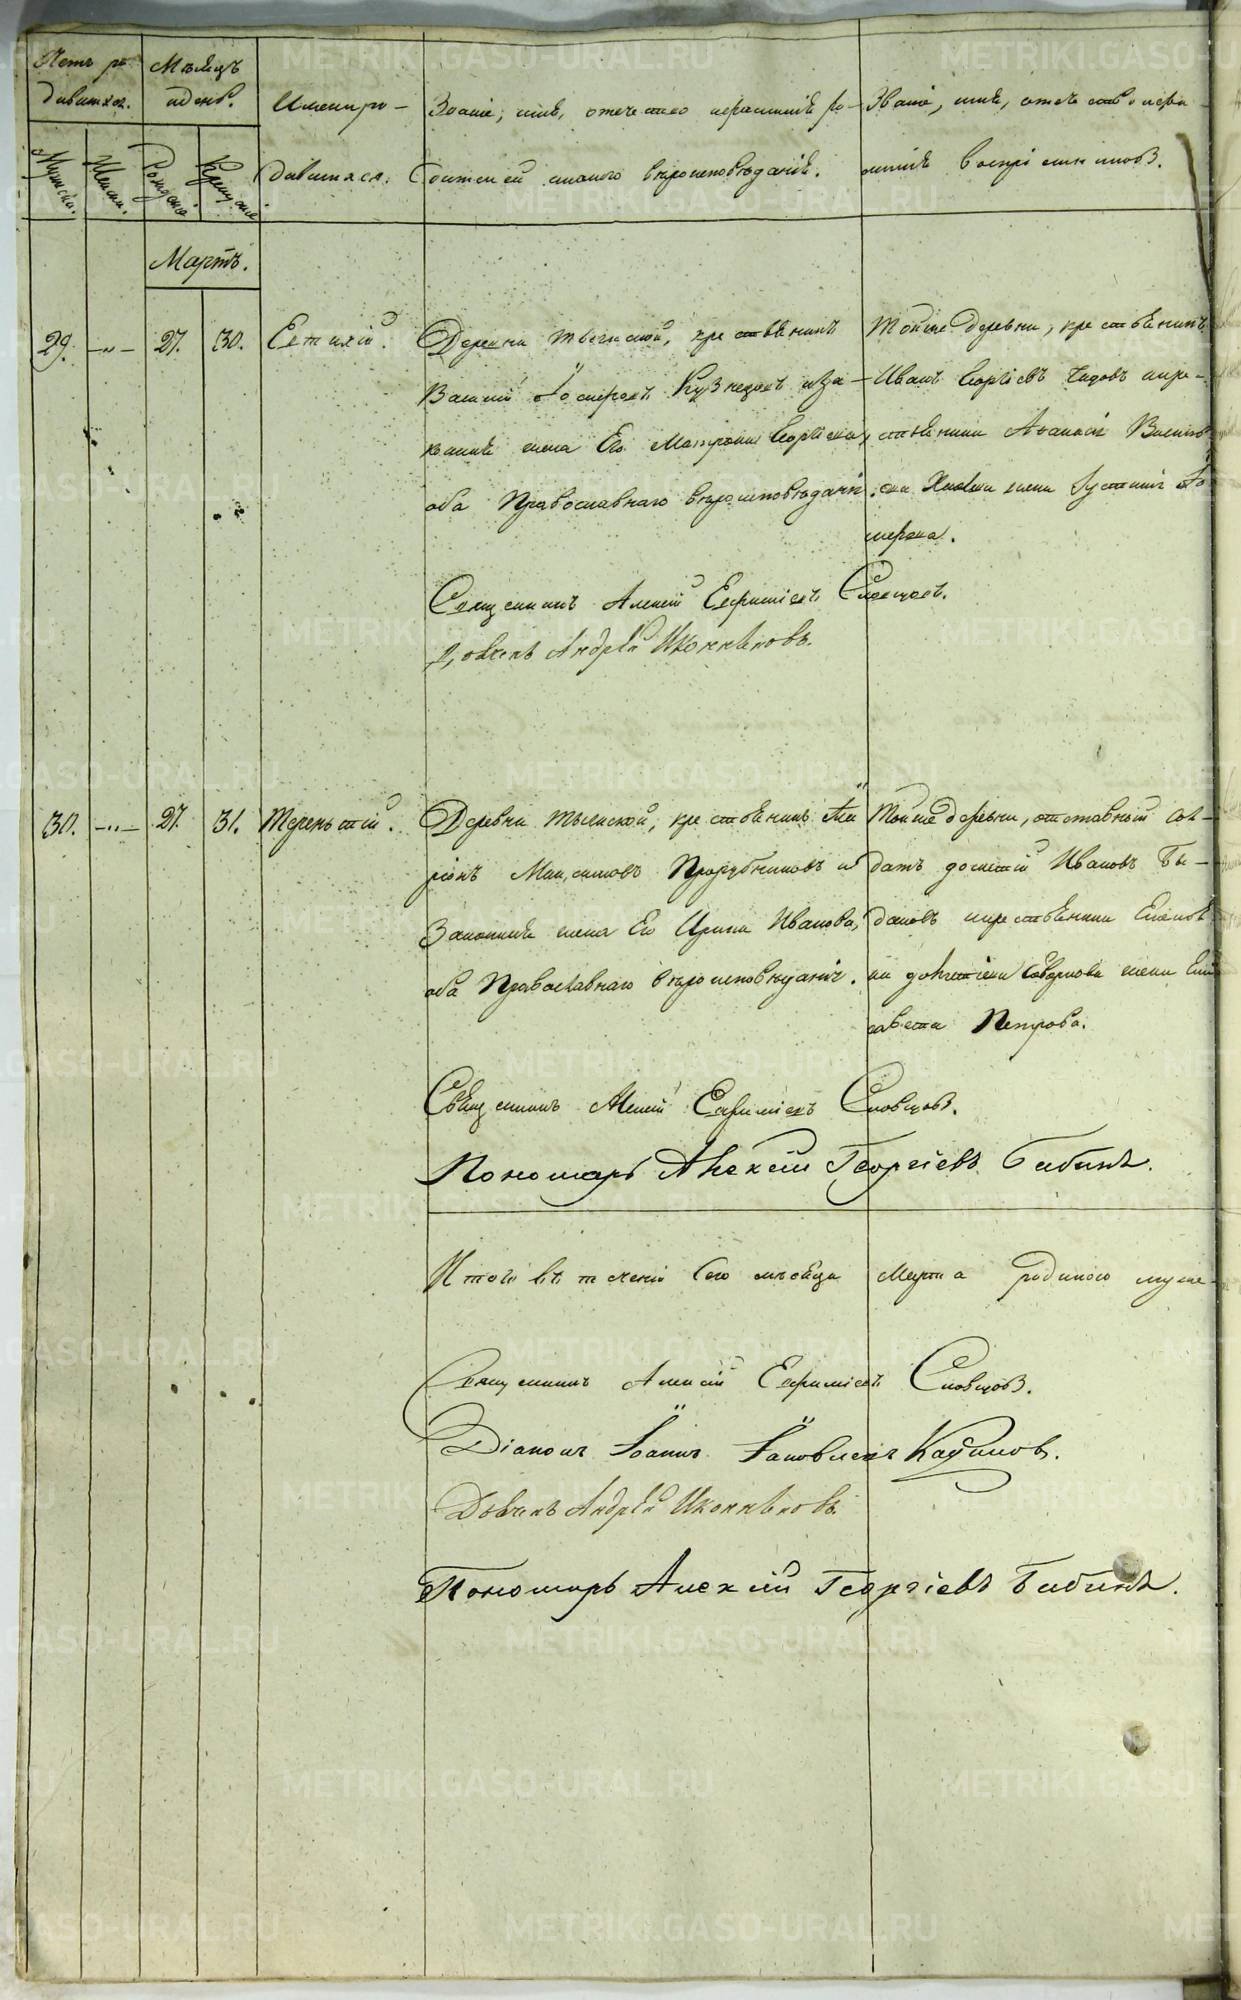 Счетъ ро-
дившихся.
Мѣсяцъ
и день.
Имена ро-
дившихся.
Званіе, имя, отечество и фамилія ро-
дителей и какого вѣроисповѣданія.
Званіе, имя, отечество и фами-
лія воспріемниковъ.
Мужска.
Женска.
Рожденіе
Крещеніе
Мартъ.
29.
—"—
27.
30.
Евтихій.
Деревни крестьянинъ
Василій Кузнецовъ и за-
конная жена Его Матрона Георгіева,
оба Православнаго вѣроисповѣданія.
Тойже Деревни, крестьянинъ
Иванъ Георгіевъ и кре-
стьянина Аѳанасія
жена Іустинія
Священникъ Алексій Евфиміевъ Словцовъ.
Дьячекъ Андрей Иконниковъ.
30.
—"—
27.
31.
Терентій.
Деревни крестьянинъ
Максимовъ Прорубниковъ и
Законная жена Его Ирина Иванова,
оба Православнаго вѣроисповѣданія.
Тойже деревни, отставный сол-
датъ Ивановъ Бы-
ковъ и крестьянина
жена Ели-
савета Петрова.
Священникъ Алексій Евфиміевъ Словцовъ.
Пономарь Алексій Георгіевъ Бабинъ.
Итого въ теченіи Сего мѣсяца Марта родилось муже-
Священникъ Алексій Евфиміевъ Словцовъ.
Діаконъ Іоаннъ Іаковлевъ
Дьячекъ Андрей Иконниковъ.
Пономарь Алексій Георгіевъ Бабинъ.
METRIKI.GASO-URAL.RU